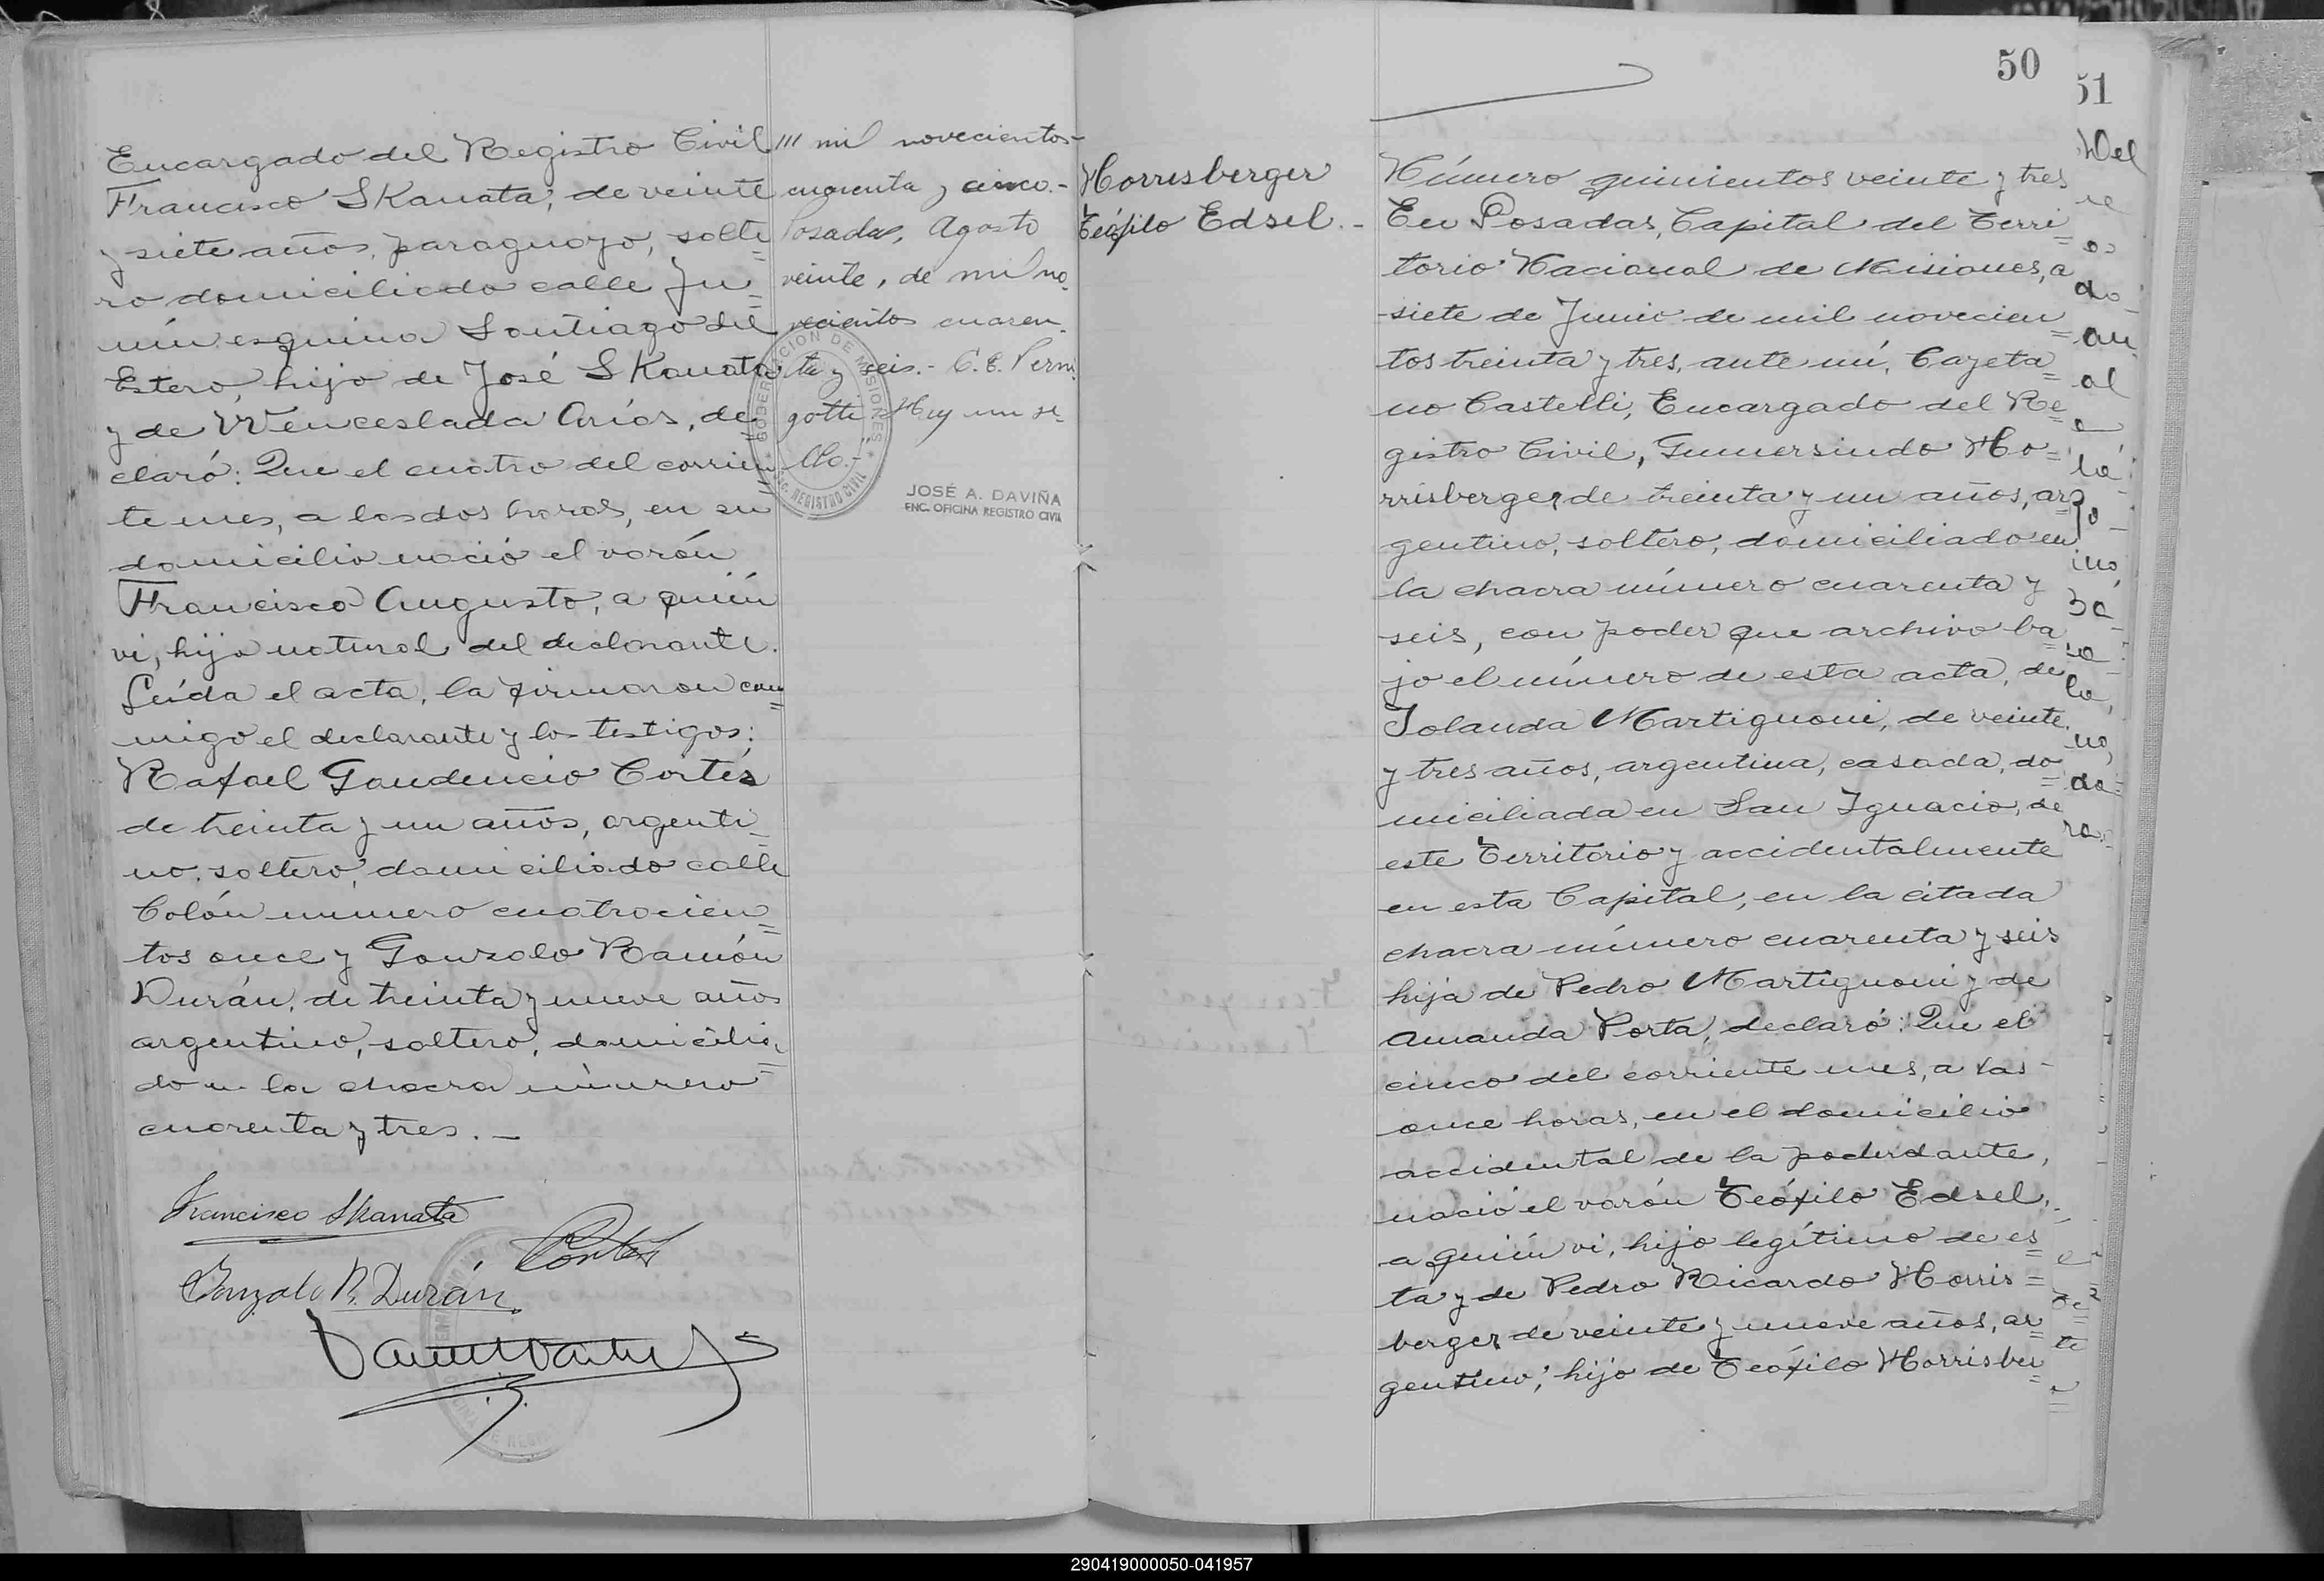 Encargado del Registro Civil
Francisco SKanata, de veinte
y siete años, paraguayo, solte
ro domiciliado calle Ju=
nín esquina Santiago del
Estero, hijo de José SKanata
y de Wenceslada Arios, de=
claró: Que el cuatro del corrien
te mes, a las dos horas, en su
domicilio nació el varón
Francisco Augusto, a quién
vi, hijo natural del declarante.
Leída el acta, la firmaron con=
migo el declarante y los testigos:
Rafael Gaudencio Cortés
de treinta y un años, argenti=
no, soltero, domiciliado calle
Colón número cuatrocien=
tos once y Gonzalo Ramón
Durán, de treinta y nueve años
argentino, soltero, domicilia=
do en la chacra número
cuarenta y tres. —
Francisco Skanata
Cortés
Gonzalo R. Durán
/// mil novecientos-
cuarenta y cinco.-
Posadas, Agosto
veinte, de mil no=
vecientos cuaren=
ta y seis.- C. E.
Hay un se=
llo.-
GOBERNACION DE MISIONES
ENC. REGISTRO CIVIL
JOSÉ A. DAVIÑA
ENC. OFICINA REGISTRO CIVIL
50
51
Horrisberger
Teófilo Edsel.-
Número quinientos veinte y tres
En Posadas, Capital del Terri=
torio Nacional de Misiones, a
siete de Junio de mil novecien=
tos treinta y tres, ante mí, Cayeta=
no Castelli, Encargado del Re=
gistro Civil, Gumersindo Ho=
rrisberger, de treinta y un años, ar=
gentino, soltero, domiciliado en
la chacra número cuarenta y
seis, con poder que archivo ba=
jo el número de esta acta, de
Iolanda Martignoni, de veinte
y tres años, argentina, casada, do=
miciliada en San Ignacio, de
este Territorio y accidentalmente
en esta Capital, en la citada
chacra número cuarenta y seis
hija de Pedro Martignoni y de
Amanda Porta, declaró: Que el
cinco del corriente mes, a las-
once horas, en el domicilio
accidental de la poderdante,
nació el varón Teófilo Edsel,
a quién vi, hijo legítimo de es=
ta y de Pedro Ricardo Horris=
berger, de veinte y nueve años, ar=
gentino, hijo de Teófilo Horrisber=
290419000050-041957